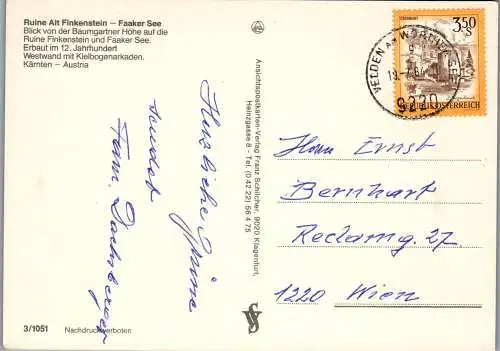 Ruine Alt Finkenstein — Faaker See
Blick von der Baumgartner Höhe auf die
Ruine Finkenstein und Faaker See.
Erbaut im 12. Jahrhundert
Westwand mit Kielbogenarkaden.
Kärnten – Austria
Herzliche Grüße
sendet
Fam. Dachsberger
3/1051 Nachdruck verboten
Ansichtspostkarten-Verlag Franz Schilcher, 9020 Klagenfurt,
Heinzgasse 8 - Tel. (0 42 22) 56 4 75
VELDEN AM WÖRTHER SEE
9220
3.50
S
REPUBLIK ÖSTERREICH
Herrn Ernst
Bernhart
Reclamg. 27
1220 Wien